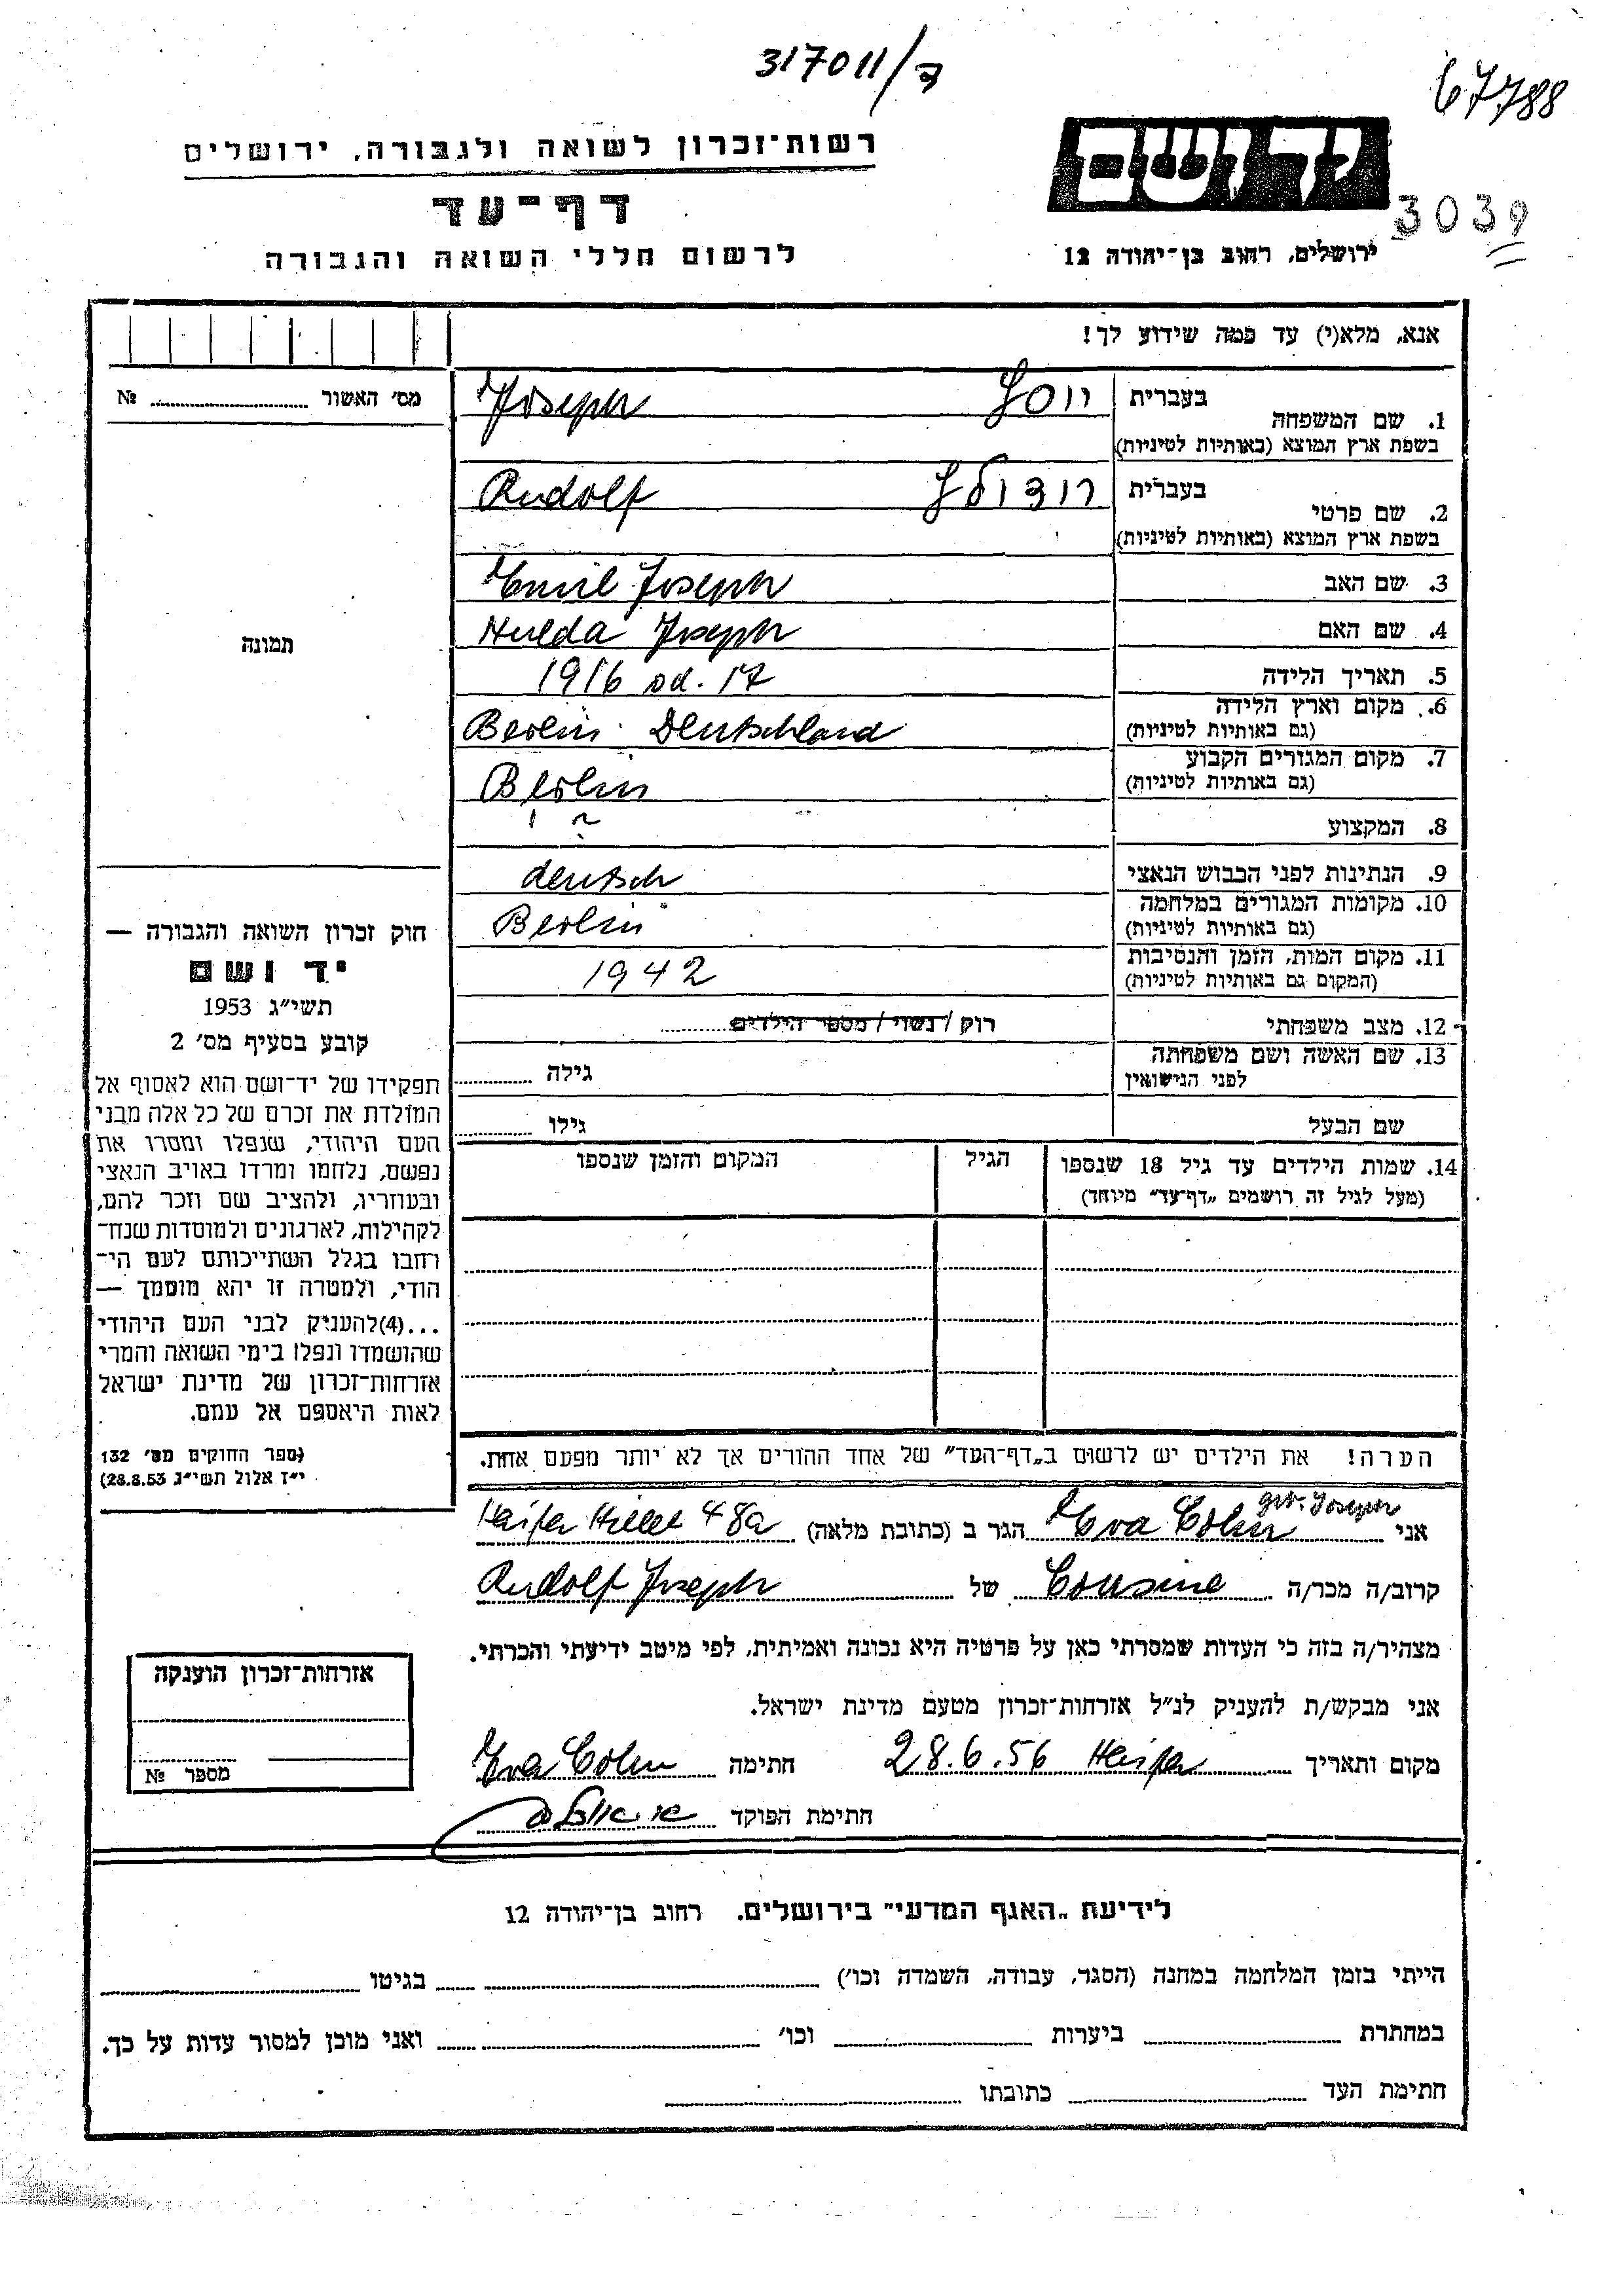 317011/ד
67788
רשות־זכרון לשואה ולגבורה, ירושלים
דף־עד
לרשום חללי השואה והגבורה
יד ושם
3039
ירושלים, רחוב בן־יהודה 12
אנא, מלא(י) עד כמה שידוע לך!
מס׳ האשור № 
תמונה
1. שם המשפחה
בעברית יוסף
בשפת ארץ המוצא (באותיות לטיניות) Joseph
2. שם פרטי
בעברית רודולף
בשפת ארץ המוצא (באותיות לטיניות) Rudolf
3. שם האב Emil Joseph
4. שם האם Hulda Joseph
5. תאריך הלידה 1916 od. 17
6. מקום וארץ הלידה Berlin Deutschland
(גם באותיות לטיניות)
7. מקום המגורים הקבוע Berlin
(גם באותיות לטיניות)
8. המקצוע ?
9. הנתינות לפני הכבוש הנאצי deutsch
10. מקומות המגורים במלחמה Berlin
(גם באותיות לטיניות)
11. מקום המות, הזמן והנסיבות 1942
(המקום גם באותיות לטיניות)
12. מצב משפחתי רוק / נשוי / מספר הילדים
13. שם האשה ושם משפחתה
לפני הנישואין גילה
שם הבעל גילו
14. שמות הילדים עד גיל 18 שנספו הגיל המקום והזמן שנספו
(מעל לגיל זה רושמים „דף־עד” מיוחד)
חוק זכרון השואה והגבורה —
יד ושם
תשי״ג 1953
קובע בסעיף מס׳ 2
תפקידו של יד־ושם הוא לאסוף אל
המולדת את זכרם של כל אלה מבני
העם היהודי, שנפלו ומסרו את
נפשם, נלחמו ומרדו באויב הנאצי
ובעוזריו, ולהציב שם וזכר להם,
לקהילות, לארגונים ולמוסדות שנח־
רחבו בגלל השתייכותם לעם הי־
הודי, ולמטרה זו יהא מוסמך —
...(4)להעניק לבני העם היהודי
שהושמדו ונפלו בימי השואה והמרי
אזרחות־זכרון של מדינת ישראל
לאות היאספם אל עמם.
(ספר החוקים מס׳ 132
י״ז אלול תשי״ג 28.8.53)
הערה! את הילדים יש לרשום ב„דף־העד” של אחד ההורים אך לא יותר מפעם אחת.
geb. Joseph
אני Eva Cohn הגר ב (כתובת מלאה) Haifa Hillel 48a
קרוב/ה מכר/ה Cousine של Rudolf Joseph
מצהיר/ה בזה כי העדות שמסרתי כאן על פרטיה היא נכונה ואמיתית, לפי מיטב ידיעתי והכרתי.
אני מבקש/ת להעניק לנ״ל אזרחות־זכרון מטעם מדינת ישראל.
מקום ותאריך 28.6.56 Haifa חתימה Eva Cohn
חתימת הפוקד
אזרחות־זכרון הוענקה
מספר №
לידיעת „האגף המדעי” בירושלים. רחוב בן־יהודה 12
הייתי בזמן המלחמה במחנה (הסגר, עבודה, השמדה וכו׳) בגיטו
במחתרת ביערות וכו׳ ואני מוכן למסור עדות על כך.
חתימת העד כתובתו